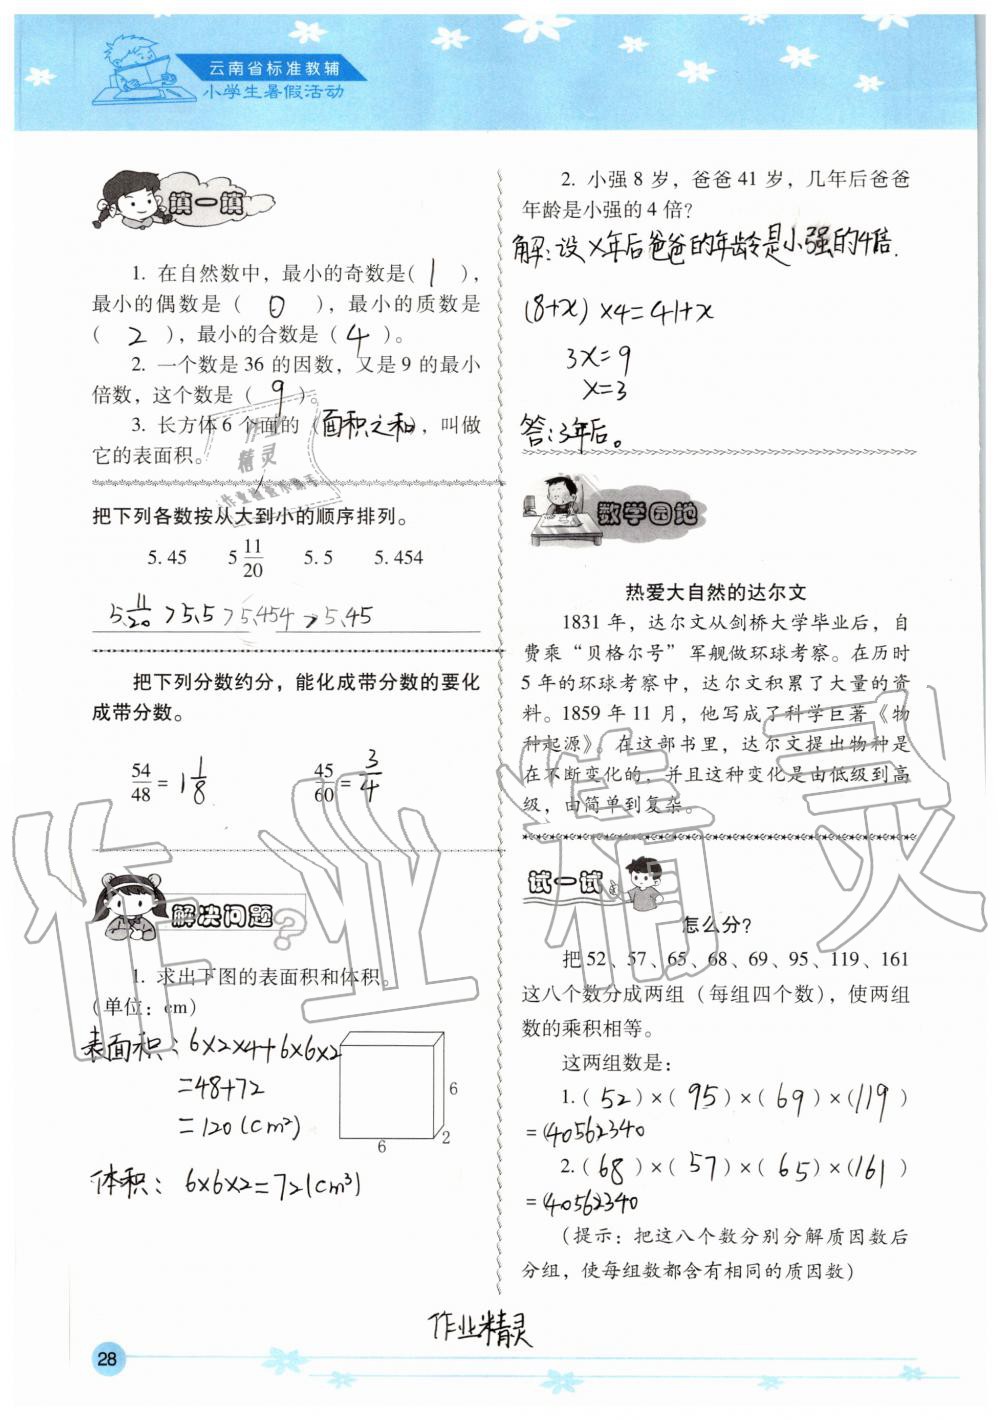 云南省标准教辅
小学生暑假活动
填一填
1. 在自然数中，最小的奇数是( 1 )，
最小的偶数是（ 0 ），最小的质数是
（ 2 ），最小的合数是（ 4 ）。
2. 一个数是 36 的因数，又是 9 的最小
倍数，这个数是（ 9 ）。
3. 长方体 6 个面的（面积之和），叫做
它的表面积。
把下列各数按从大到小的顺序排列。
5.45 5 11/20 5.5 5.454
5 11/20 > 5.5 > 5.454 > 5.45
把下列分数约分，能化成带分数的要化
成带分数。
54/48 = 1 1/8 45/60 = 3/4
解决问题
1. 求出下图的表面积和体积。
（单位：cm）
表面积：6×2×4+6×6×2
=48+72
=120(cm²)
6
2
6
体积：6×6×2=72(cm³)
2. 小强 8 岁，爸爸 41 岁，几年后爸爸
年龄是小强的 4 倍？
解：设x年后爸爸的年龄是小强的4倍.
(8+x)×4=41+x
3x=9
x=3
答：3年后。
数学园地
热爱大自然的达尔文
1831 年，达尔文从剑桥大学毕业后，自
费乘“贝格尔号”军舰做环球考察。在历时
5 年的环球考察中，达尔文积累了大量的资
料。1859 年 11 月，他写成了科学巨著《物
种起源》。在这部书里，达尔文提出物种是
在不断变化的，并且这种变化是由低级到高
级，由简单到复杂。
试一试
怎么分？
把 52、57、65、68、69、95、119、161
这八个数分成两组（每组四个数），使两组
数的乘积相等。
这两组数是：
1.( 52 )×( 95 )×( 69 )×(119 )
=(40562340
2.( 68 )×( 57 )×( 65 )×(161 )
=(40562340
（提示：把这八个数分别分解质因数后
分组，使每组数都含有相同的质因数）
作业精灵
28
作业精灵
作业
精灵